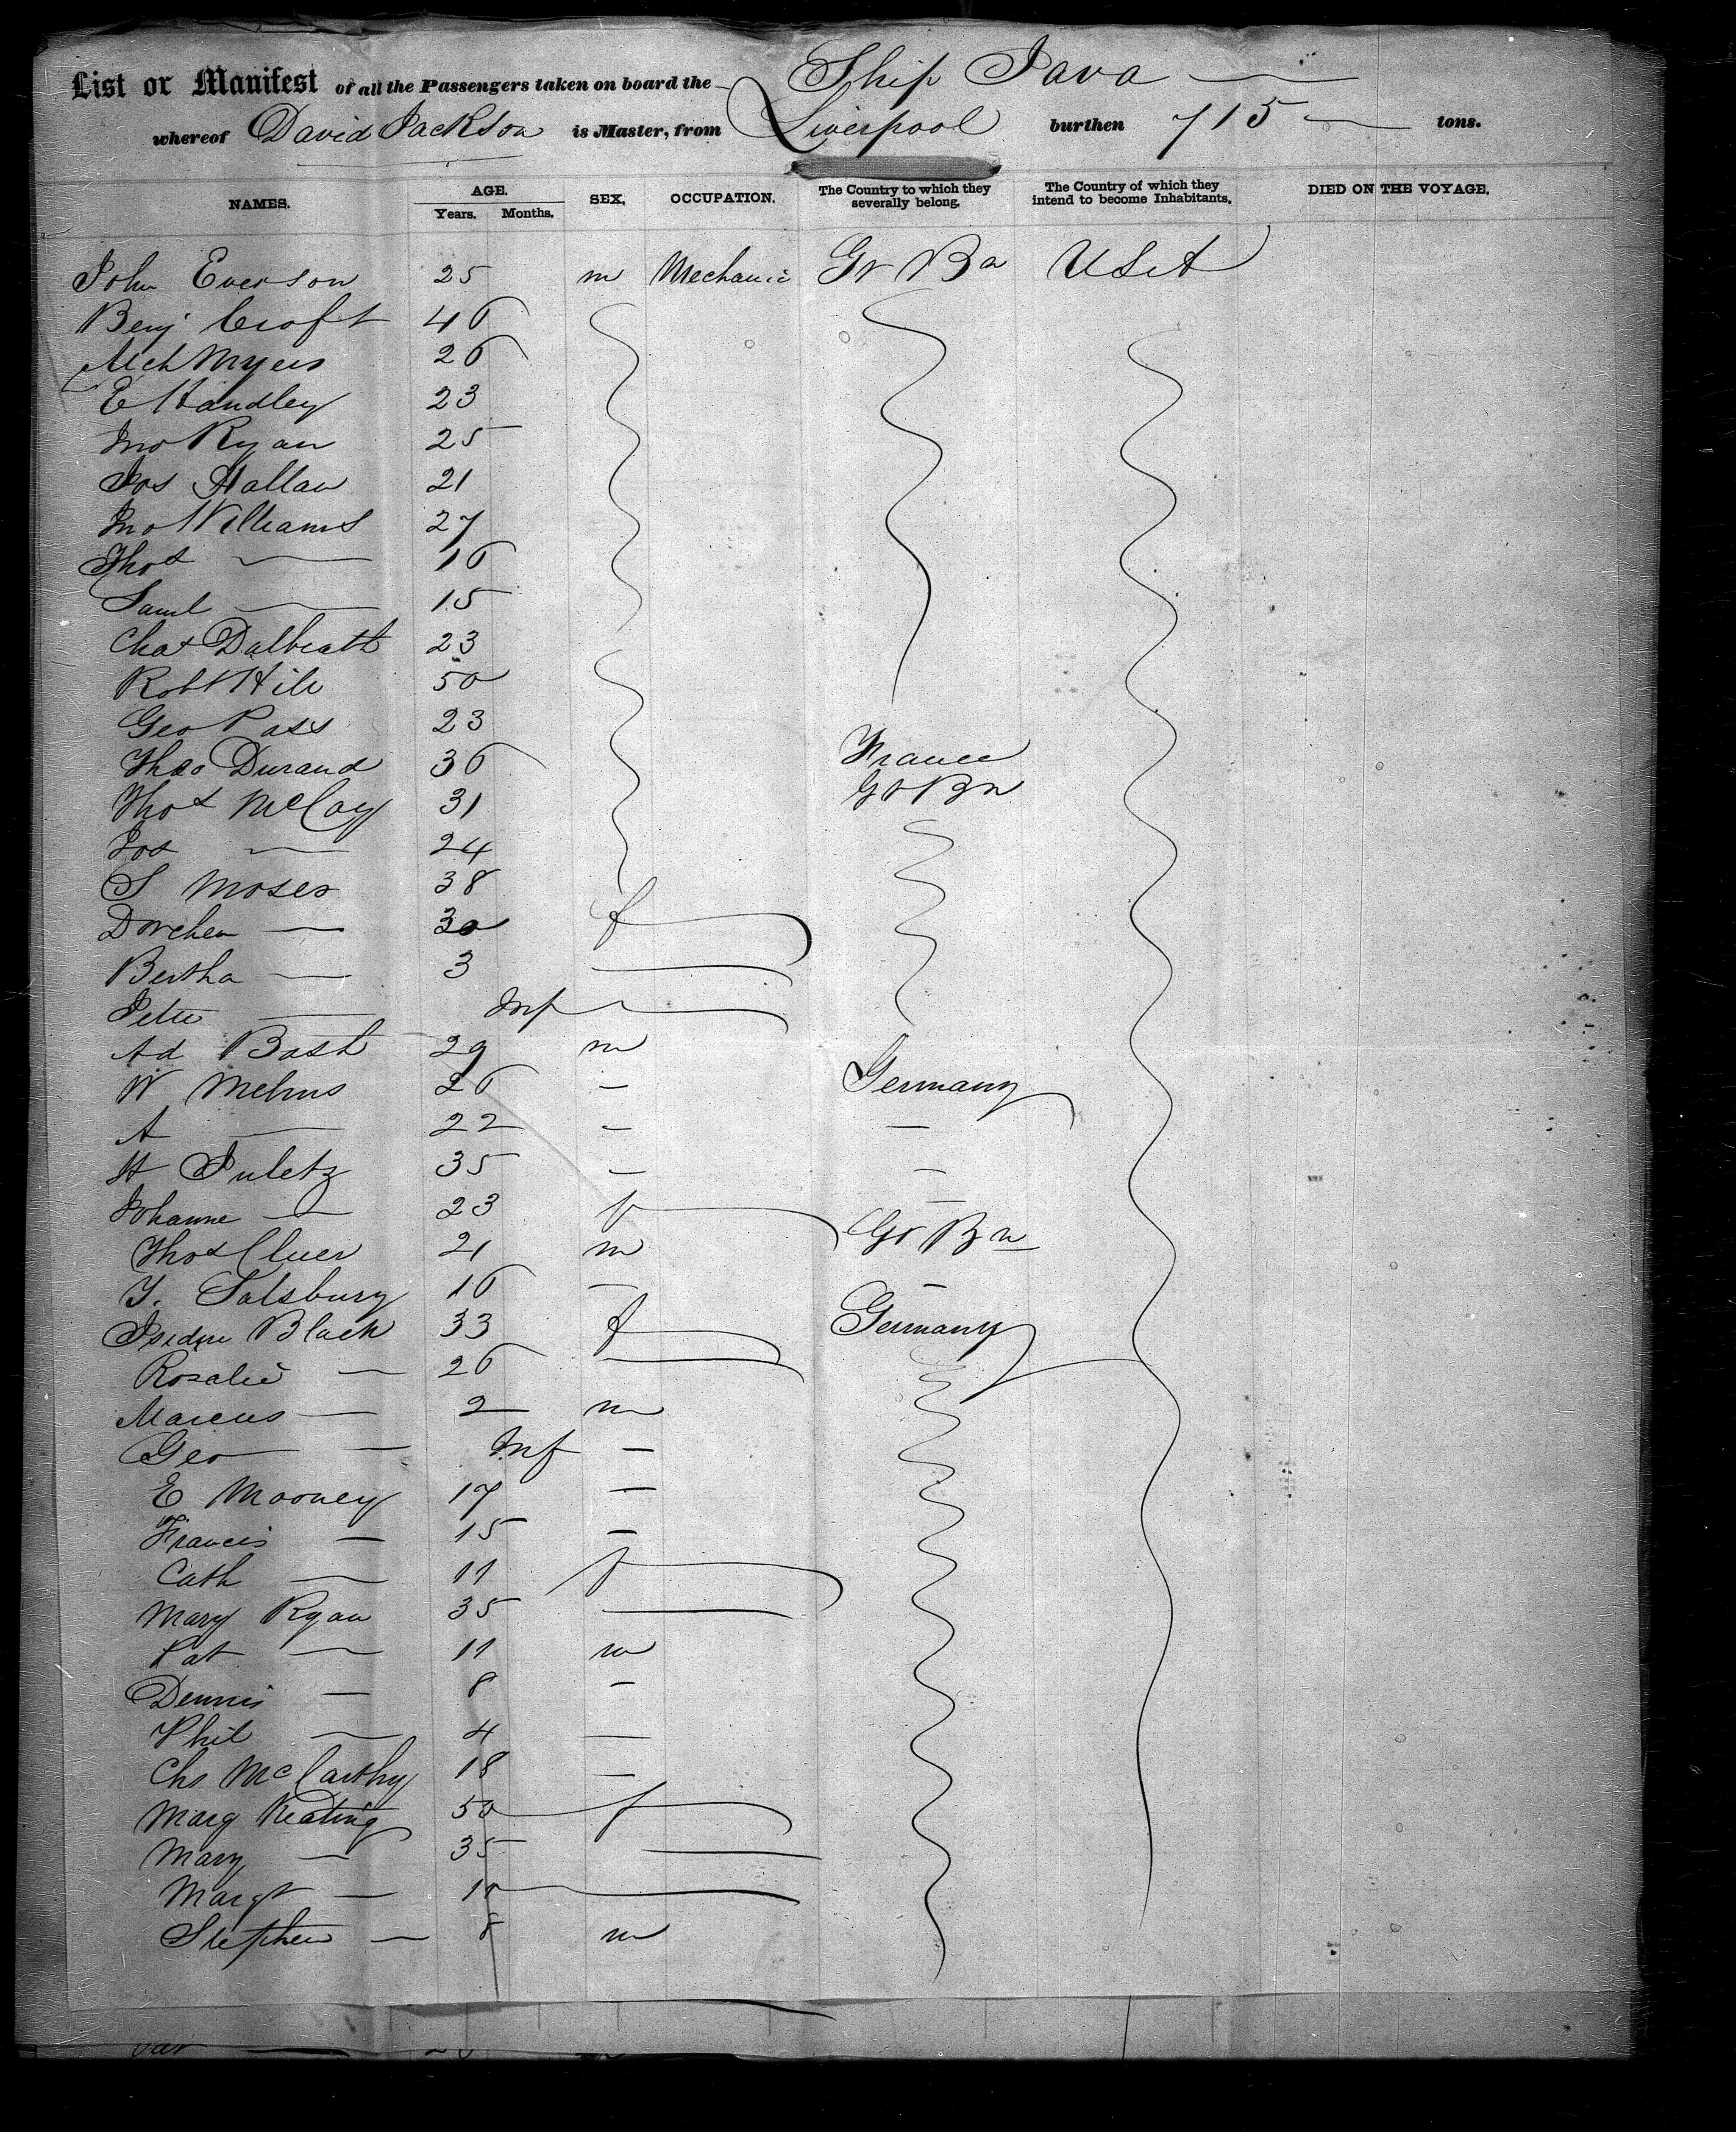 List or Manifest of all the Passengers taken on board the Ship Java
whereof David Jackson is Master, from Liverpool burthen 715 tons.
NAMES. AGE. Years. Months. SEX. OCCUPATION. The Country to which they severally belong. The Country of which they intend to become Inhabitants. DIED ON THE VOYAGE.
John Everson 25 m Mechanic Gr Bn USA
Benj Croft 46
Mch Myers 26
E Handley 23
Jno Ryan 25
Jos Hallan 21
Jno Williams 27
Thos — 16
Saml — 15
Chas Dalbeath 23
Robt Hill 50
Geo Pass 23
Theo Durand 36 France
Thos McCoy 31 Gr Bn
Jos — 24
S Moses 38
Dorchen — 30 f
Bertha — 3 —
Peter — Inf —
Ad Bash 29 m
W Mehms 26 — Germany
A — 22 — —
H Puletz 35 — —
Johanne — 23 f —
Thos Cluer 21 m Gr Bn
Y. Salsbury 16 — —
Isidne Black 33 f Germany
Rosalie — 26 —
Marcus — 2 m
Geo — Inf —
E Mooney 17 —
Francis — 15 —
Cath — 11 f
Mary Ryan 35 —
Pat — 11 m
Dennis — 8 —
Phil — 4 —
Chs McCarthy 18 —
Marg Keating 50 f
Mary — 35 —
Margt — 10 —
Stephen — 8 m